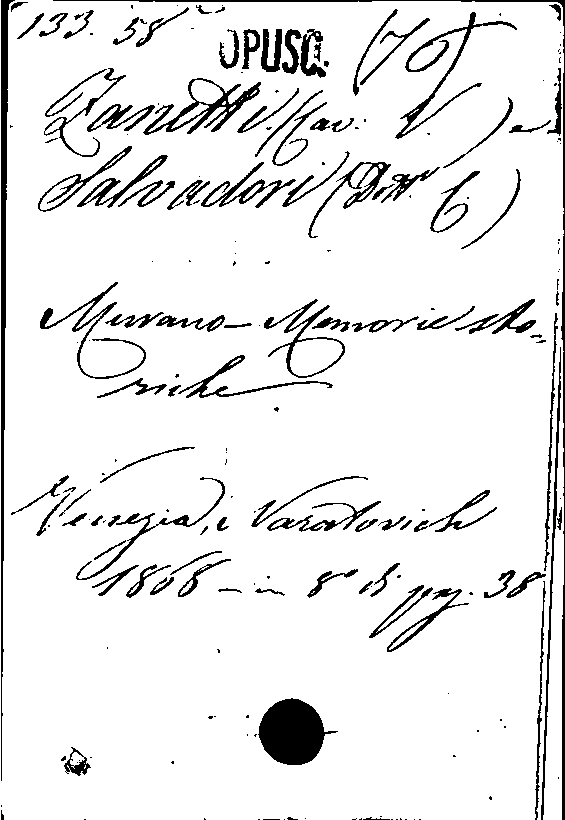 133. 58
OPUSC. (70)
Zanetti (Cav. V.) e
Salvadori (Dott. C.)
Murano - Memorie sto-
riche
Venezia, i Varatovich
1868 - in 8° di pag. 38